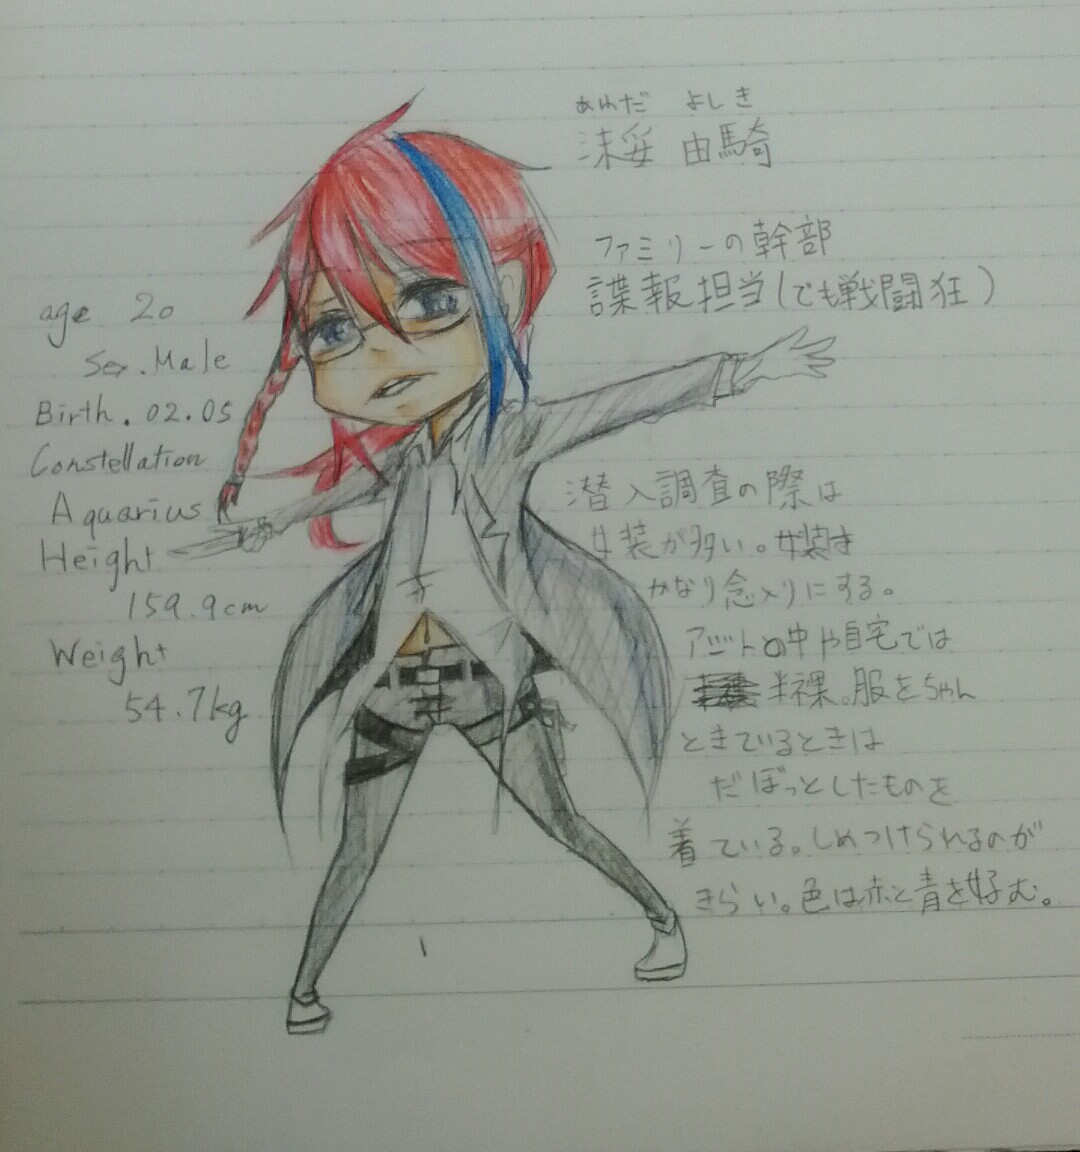 age 20
Sex. Male
Birth. 02.05
Constellation
Aquarius
Height
159.9cm
Weight
54.7kg
あわだ よしき
沫妥 由騎
ファミリーの幹部
諜報担当(でも戦闘狂)
潜入調査の際は
女装が多い。女装は
かなり念入りにする。
アジトの中や自宅では
半裸。服をちゃん
ときているときは
だぼっとしたものを
着ている。しめつけられるのが
きらい。色は赤と青を好む。